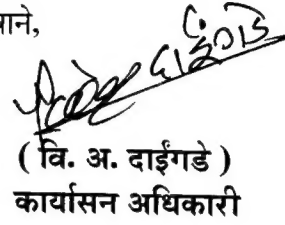 माने,
( वि. अ. दाईंगडे )
कार्यासन अधिकारी